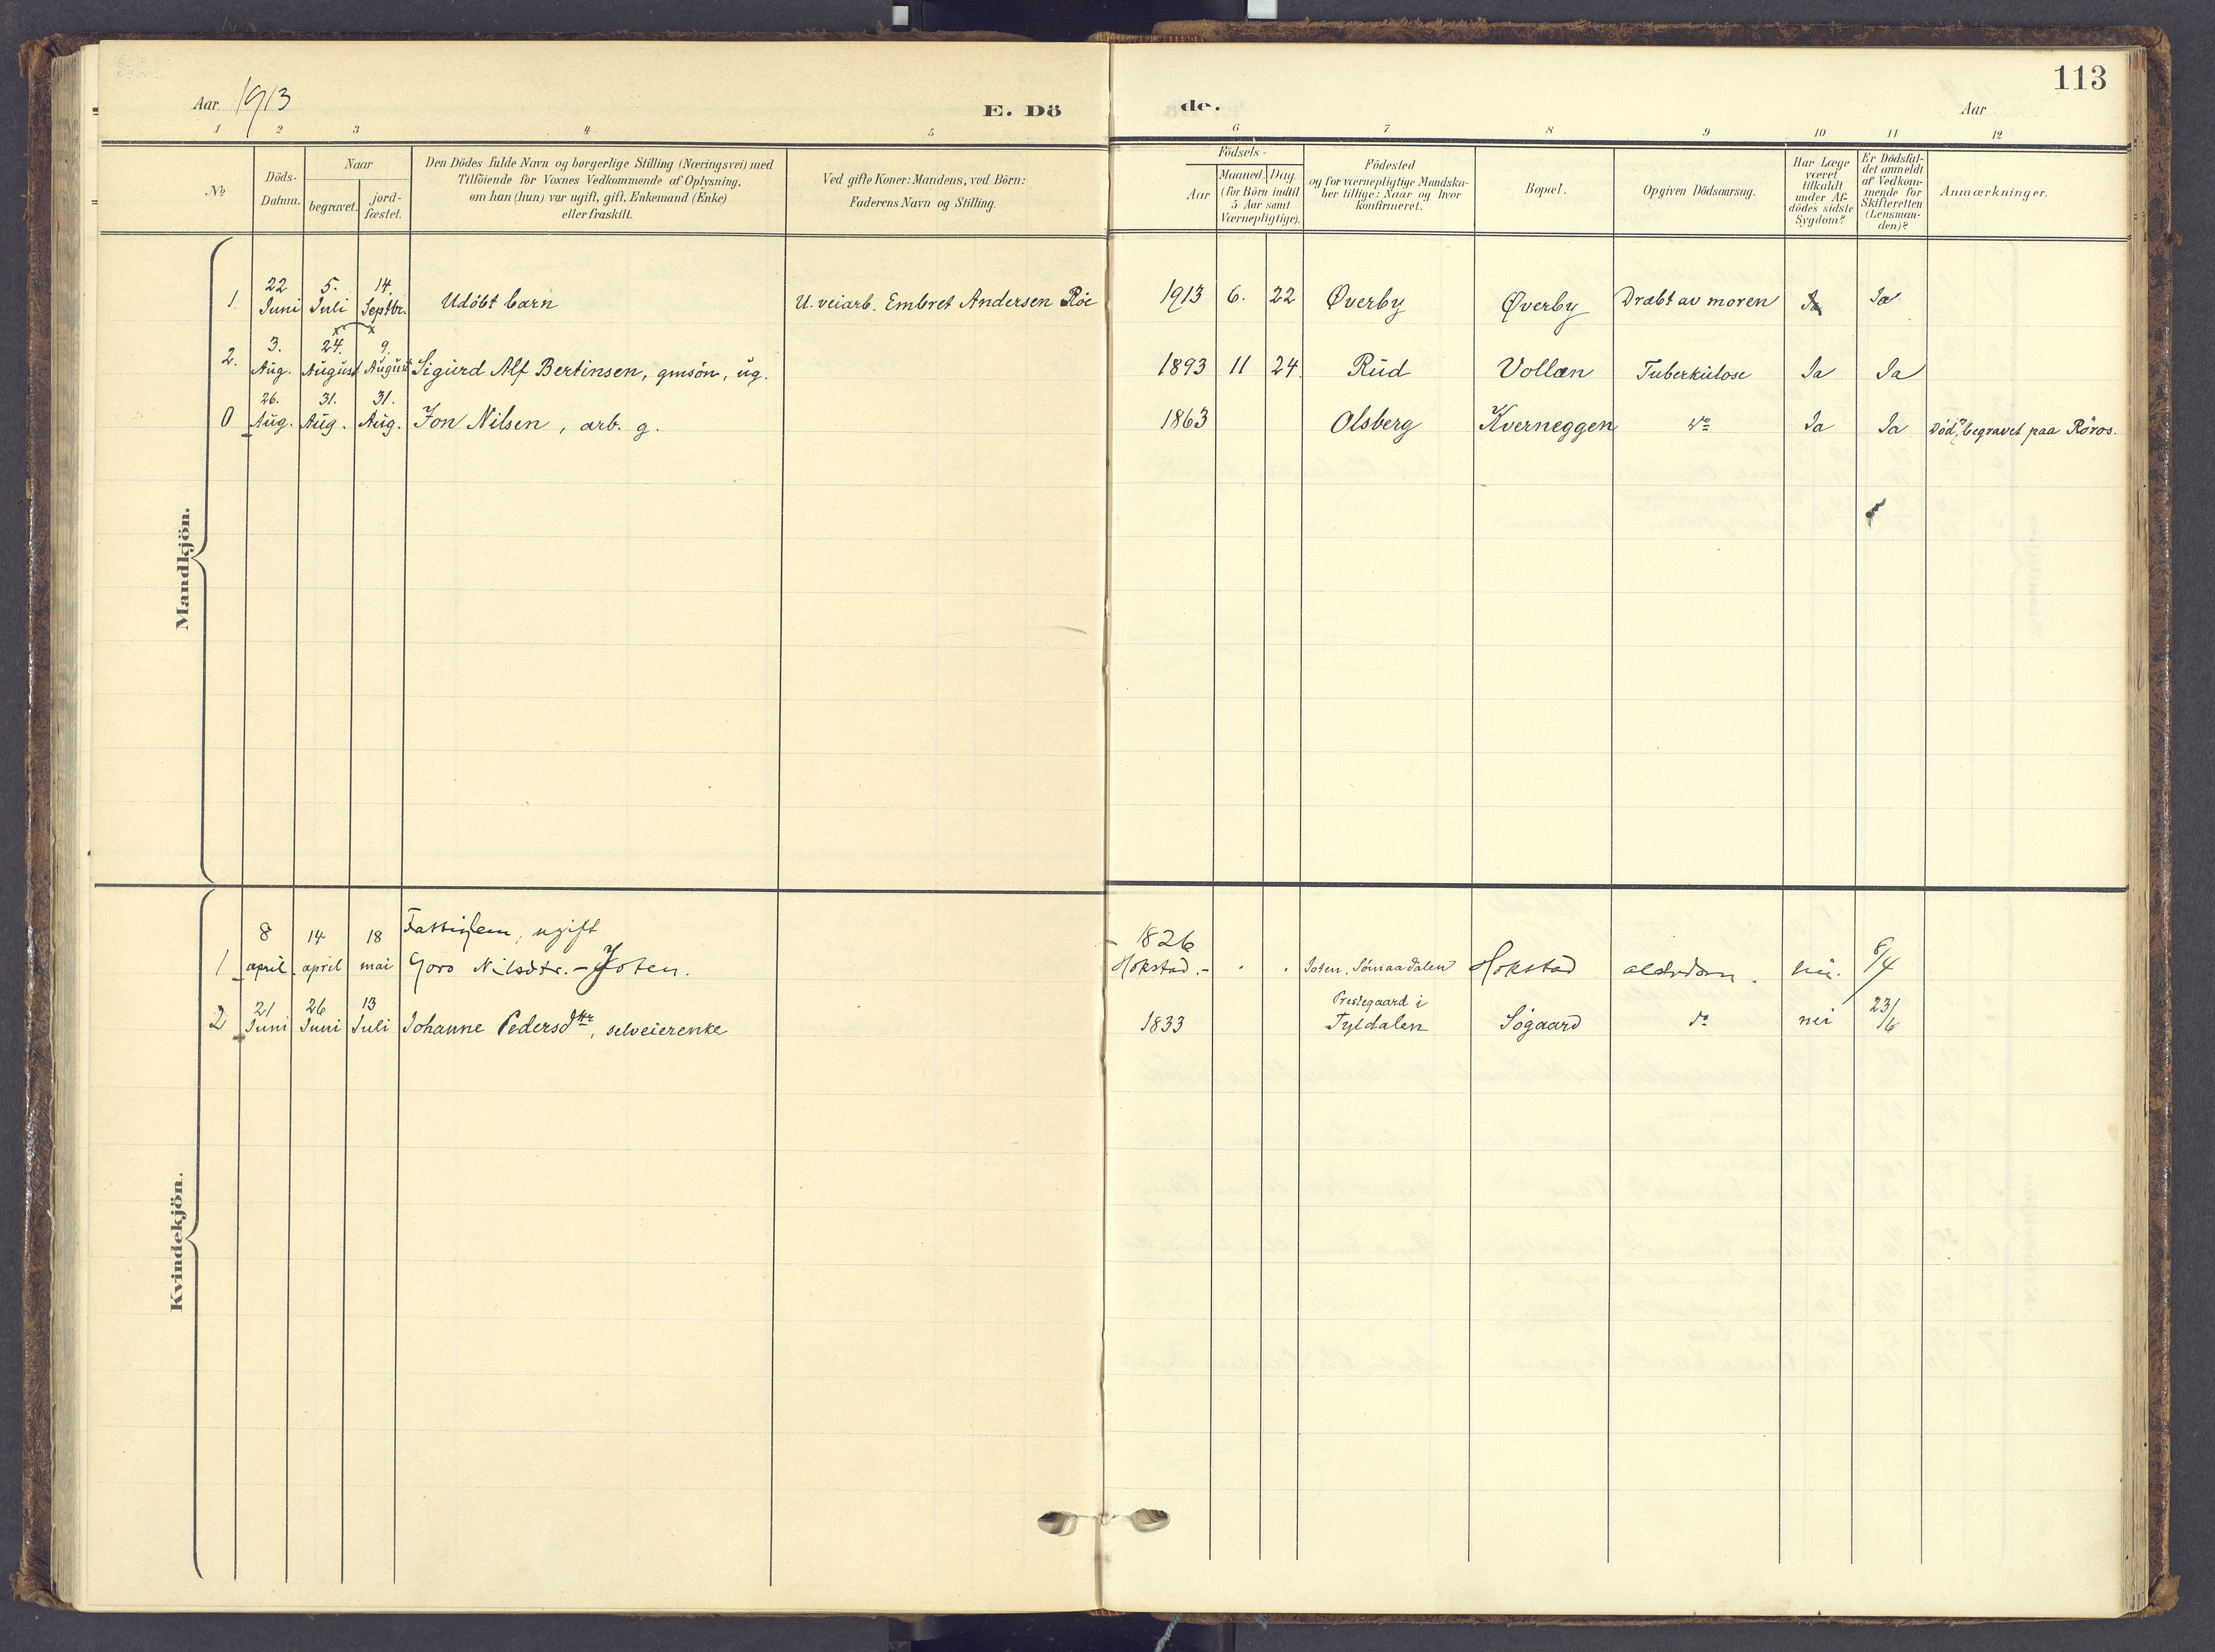 113
Aar 1913
E. Dö
de.
Aar
1 2 3 4 5 6 7 8 9 10 11 12
№
Döds-
Datum.
Naar
begravet.
jord-
fæstet.
Den Dödes fulde Navn og borgerlige Stilling (Næringsvei) med
Tilföiende for Voxnes Vedkommende af Oplysning,
om han (hun) var ugift, gift, Enkemand (Enke)
eller fraskilt.
Ved gifte Koner: Mandens, ved Börn:
Faderens Navn og Stilling.
Födsels-
Aar
Maaned. Dag.
(for Börn indtil
5 Aar samt
Værnepligtige).
Födested
og for værnepligtige Mandska-
ber tillige: Naar og hvor
konfirmeret.
Bopæl.
Opgiven Dödsaarsag.
Har Læge
været
tilkaldt
under Af-
dödes sidste
Sygdom?
Er Dödsfal-
det anmeldt
af Vedkom-
mende for
Skifteretten
(Lensman-
den)?
Anmærkninger.
Mandkjön.
22 5. 14.
1. Juni Juli Septbr. Udöbt barn U. veiarb. Embret Andersen Röe 1913 6. 22 Øverby Øverby Dræbt av moren Ja
3. 24. 9.
2. Aug. August August Sigurd Alf Bertinsen, gmsön, ug. 1893 11 24 Rud Vollan Tuberkulose Ja Ja
26. 31. 31.
0 Aug. Aug. Aug. Jon Nilsen, arb. g. 1863 Olsberg Kverneggen do Ja Ja Död, begravet paa Röros.
Kvindekjön.
8 14 18 Fattiglem, ugift 1826
1 april april mai Goro Nilsdtr. - Joten. Hokstad. - Joten, Sömaadalen Hokstad alderdom. nei. 8/4
21 26 13 Prestegaard i
2 Juni Juni Juli Johanne Pedersdttr, selveierenke 1833 Tyldalen Sögaard do nei 23/6